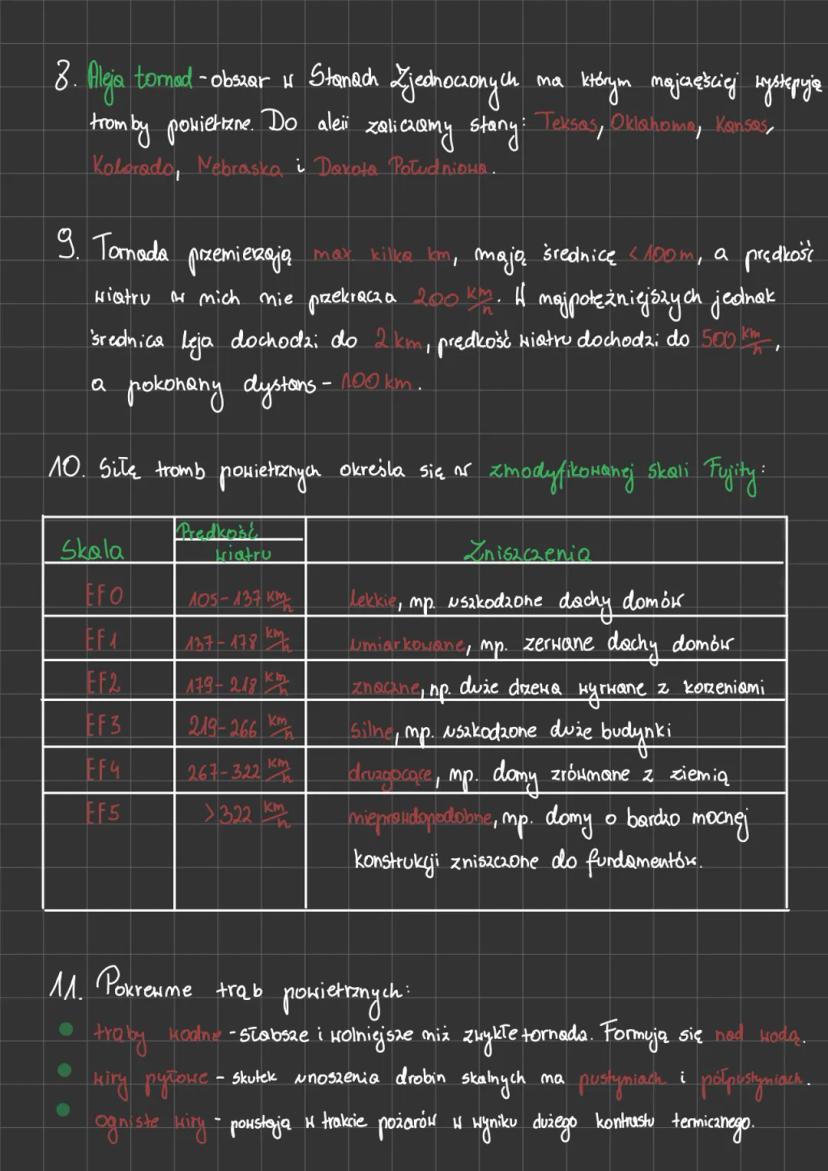 8. Aleja tornad - obszar w Stanach Zjednoczonych na którym najczęściej występują
tromby powietrzne. Do alei zaliczamy stany: Teksas, Oklahoma, Kansas,
Kolorado, Nebraska i Dakota Południowa.
9. Tornada przemierzają max. kilka km, mają średnicę <100m, a prędkość
wiatru w nich nie przekracza 200 km/h. W najpotężniejszych jednak
średnica leja dochodzi do 2 km, prędkość wiatru dochodzi do 500 km/h,
a pokonany dystans - 100 km.
10. Siłę tromb powietrznych określa się w zmodyfikowanej skali Fujity:
Skala Prędkość wiatru Zniszczenia
EF0 105-137 km/h lekkie, np. uszkodzone dachy domów
EF1 137-178 km/h umiarkowane, np. zerwane dachy domów
EF2 179-218 km/h znaczne, np. duże drzewa wyrwane z korzeniami
EF3 219-266 km/h silne, np. uszkodzone duże budynki
EF4 267-322 km/h druzgocące, np. domy zrównane z ziemią
EF5 >322 km/h nieprawdopodobne, np. domy o bardzo mocnej
konstrukcji zniszczone do fundamentów.
11. Pokrewne trąb powietrznych:
trąby wodne - słabsze i wolniejsze niż zwykłe tornada. Formują się nad wodą.
wiry pyłowe - skutek unoszenia drobin skalnych na pustyniach i półpustyniach.
ogniste wiry - powstają w trakcie pożarów w wyniku dużego kontrastu termicznego.